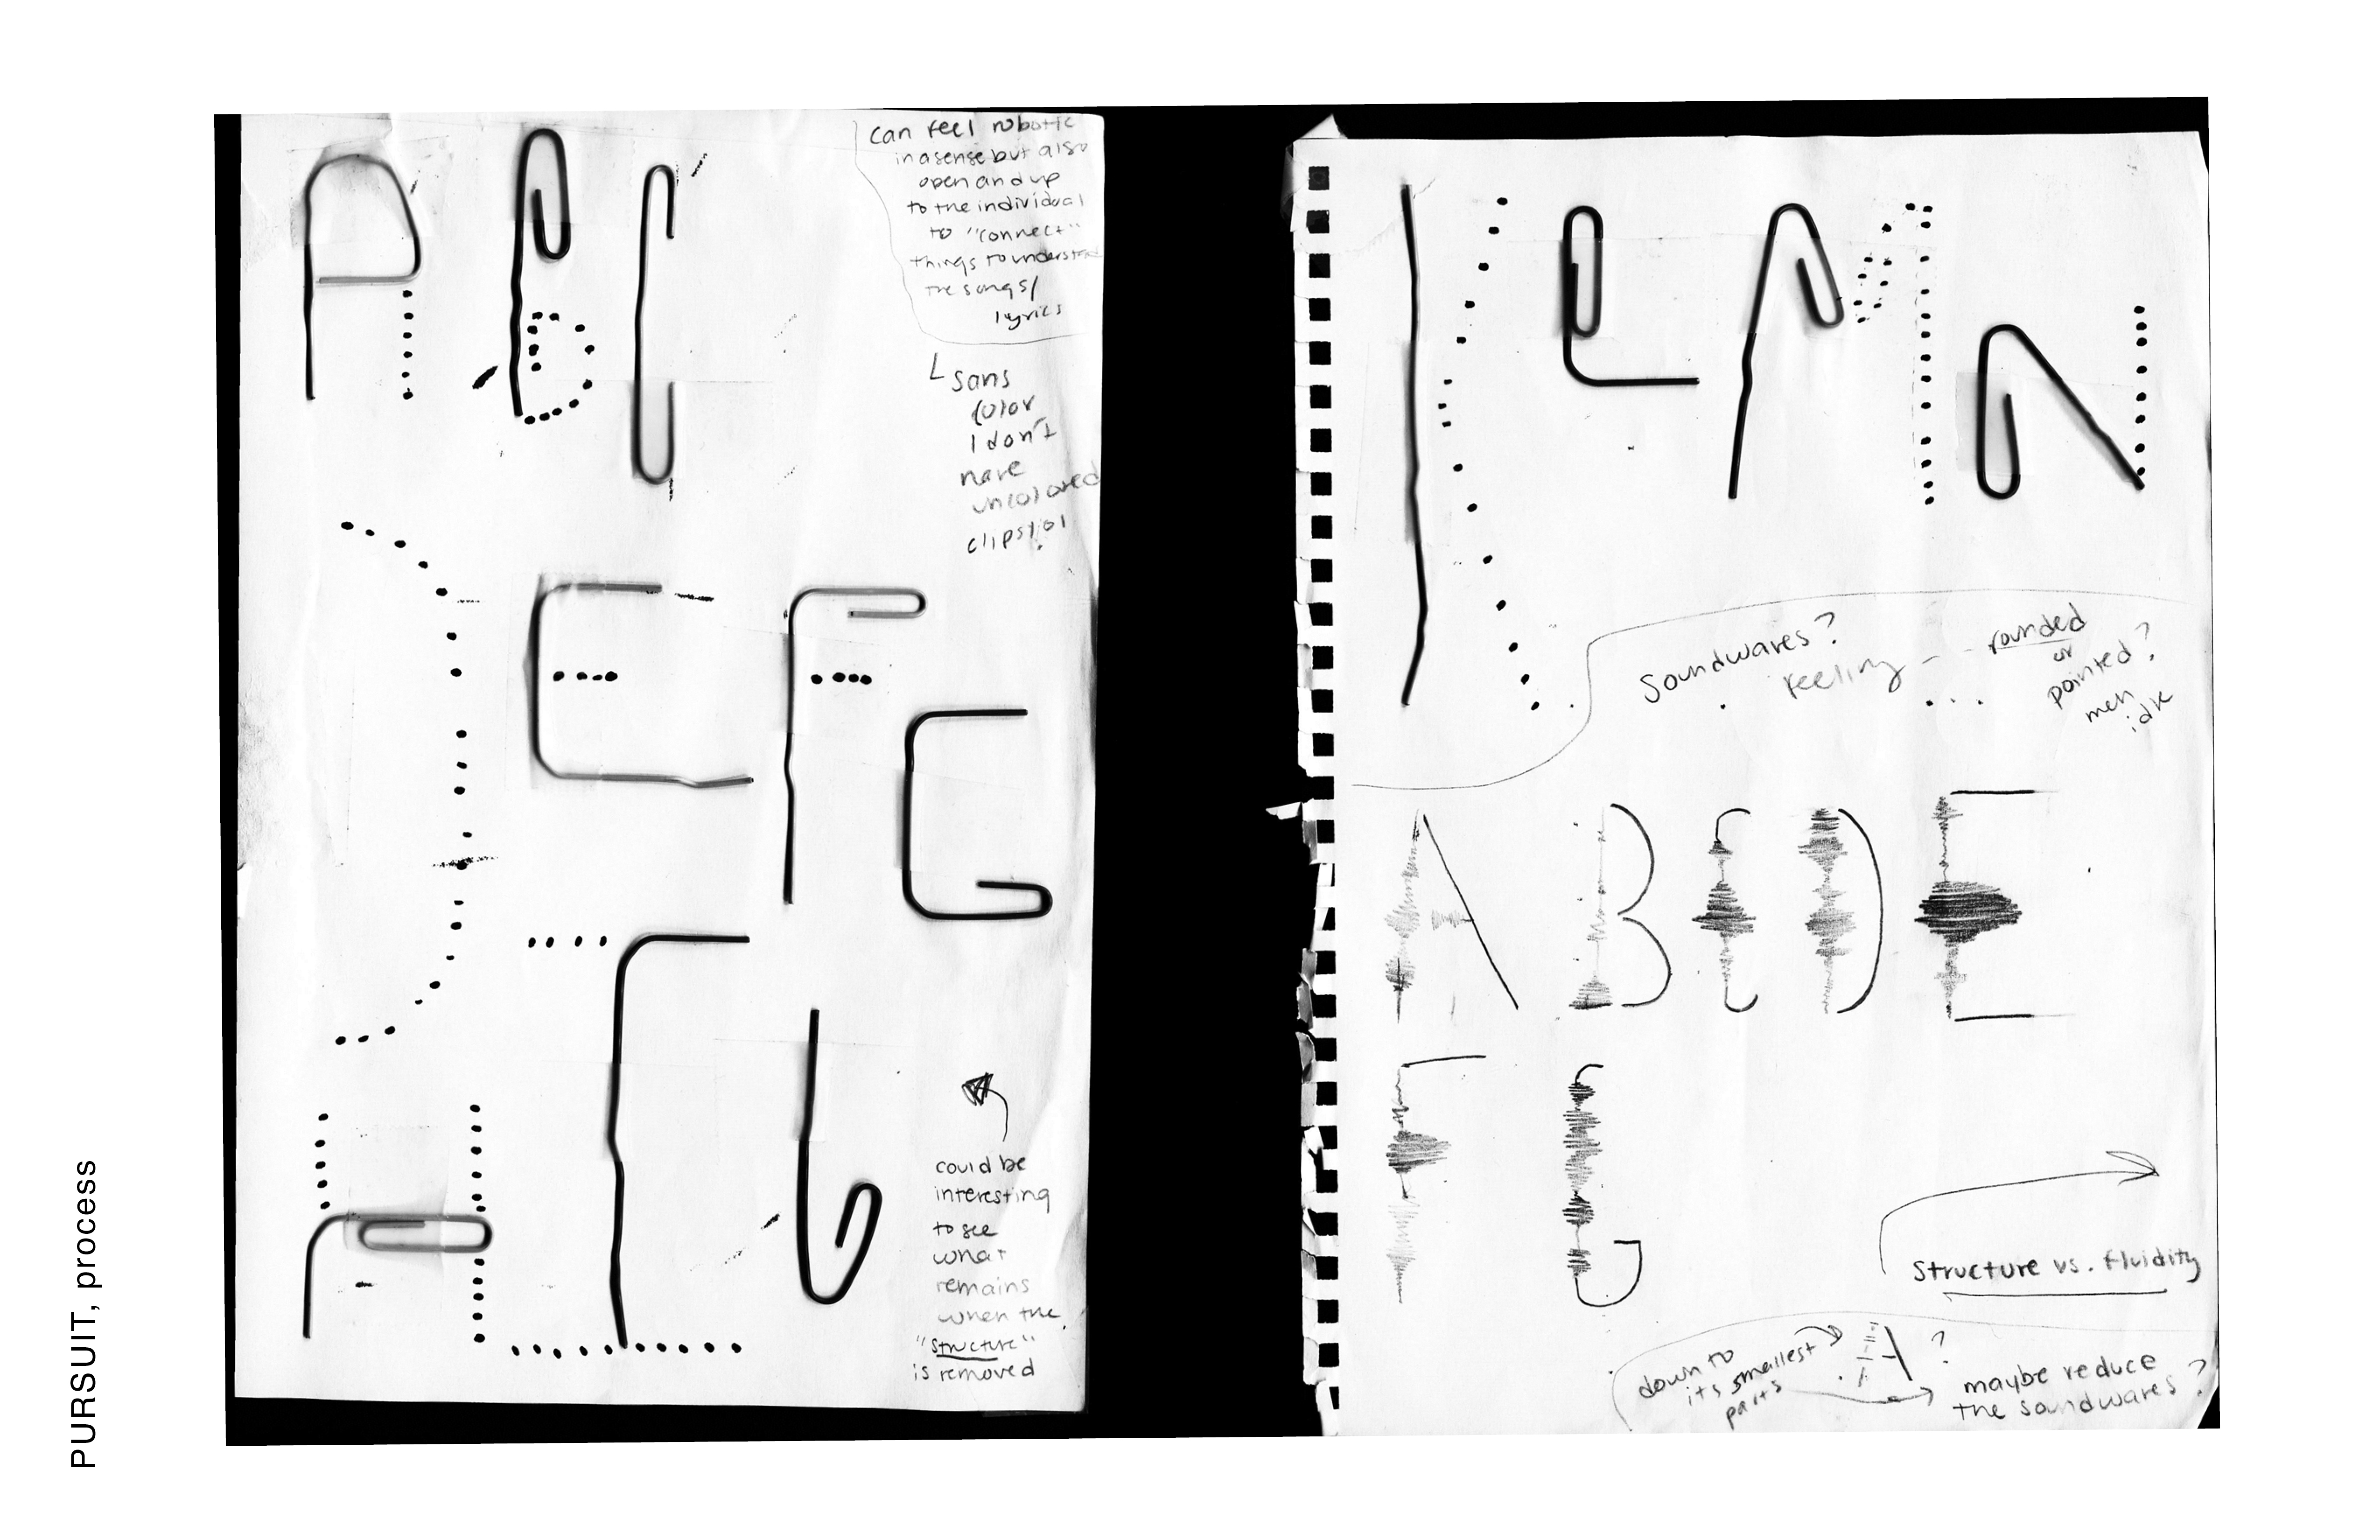 PURSUIT, process
can feel robotic
in a sense but also
open and up
to the individual
to "connect"
things to understand
the songs/
lyrics
sans
color
I don't
have
uncolored
clips lol
A B C
D E F G
H I J
could be
interesting
to see
what
remains
when the
"structure"
is removed
K L M N
Soundwaves?
feeling -- rounded
or
pointed?
meh
idk
A B C D E
F G
Structure vs. fluidity
down to
its smallest
parts
A ?
maybe reduce
the soundwaves?